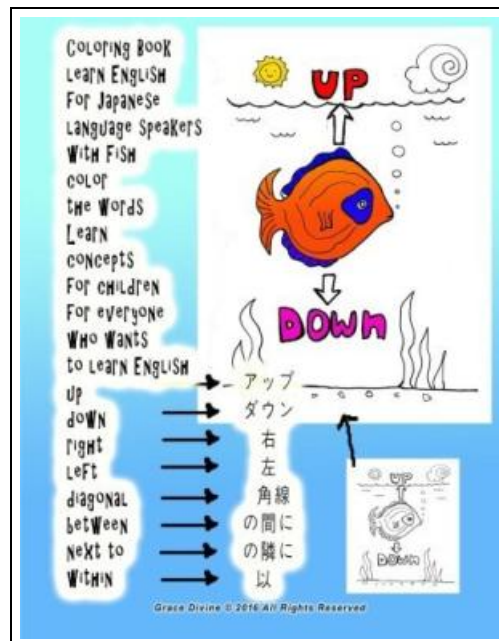 Coloring Book
Learn English
For Japanese
Language Speakers
With Fish
color
the Words
Learn
concepts
For children
For everyone
Who Wants
to Learn English
up
down
right
left
diagonal
between
next to
within
アップ
ダウン
右
左
角線
の間に
の隣に
以
UP
DOWN
UP
DOWN
Grace Divine © 2016 All Rights Reserved